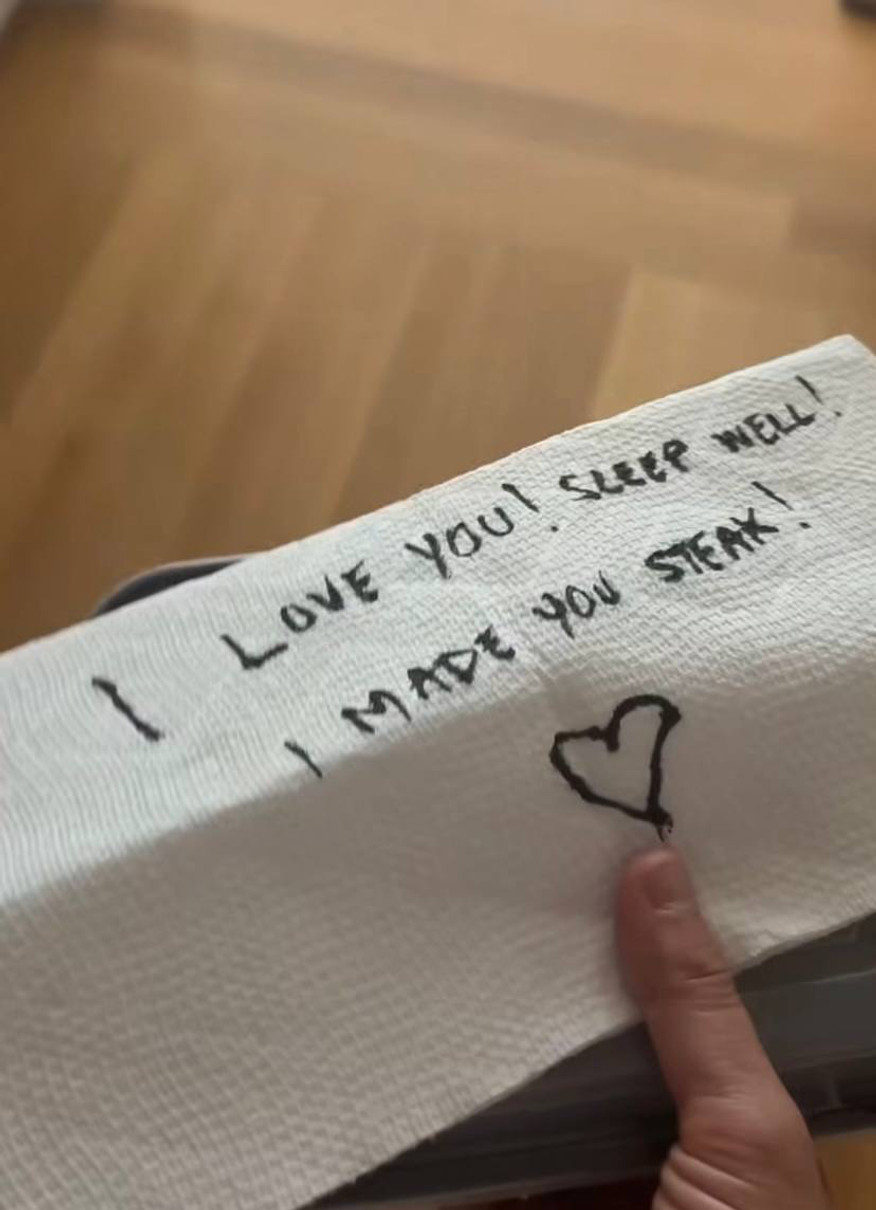 I LOVE YOU! SLEEP WELL!
I MADE YOU STEAK!